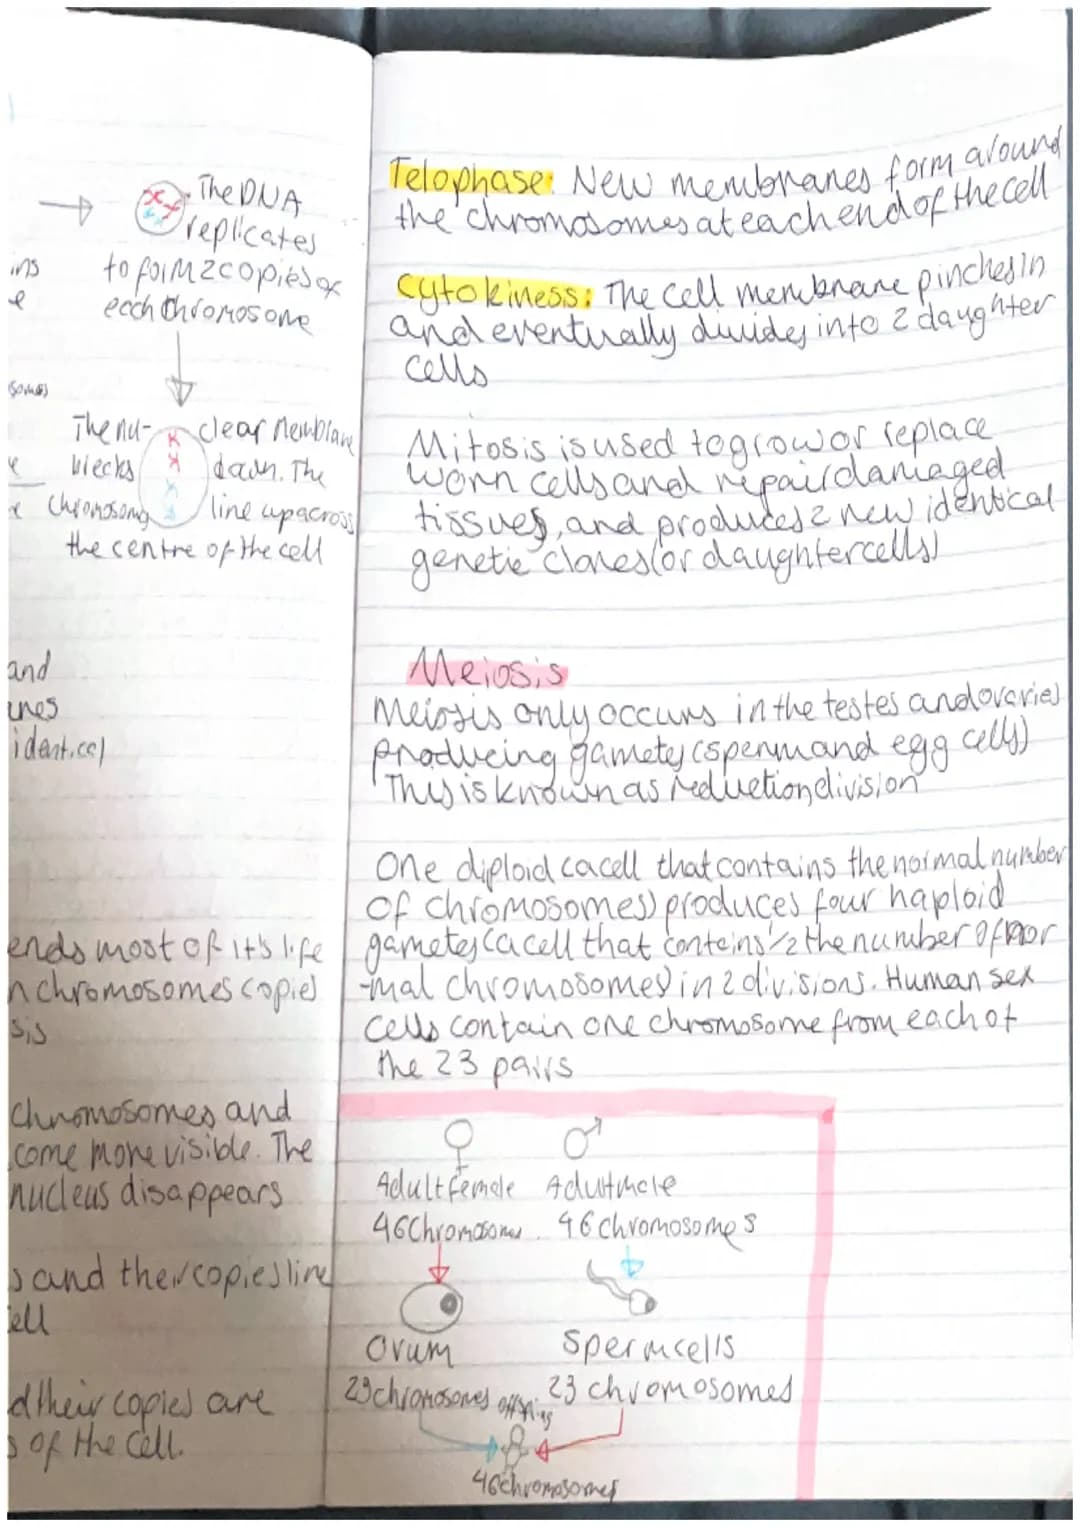 The DNA
replicates
to form 2 copies of
each chromosome
ins
e
somes
The nu- clear membrane
brecks down. The
chromosomg line up across
the centre of the cell
and
unes
identical
ends most of it's life
n chromosomes copied
sis
chromosomes and
come more visible. The
nucleus disappears
s and their copies line
cell
d their copies are
s of the cell.
Telophase: New membranes form around
the chromosomes at each end of the cell
Cytokiness: The cell membrane pinches in
and eventually divides into 2 daughter
cells
Mitosis is used to grow or replace
worn cells and repair damaged
tissues, and produces 2 new identical
genetic clones (or daughter cells)
Meiosis
Meiosis only occurs in the testes and ovaries
producing gametes (sperm and egg cells)
This is known as reduction division
One diploid (a cell that contains the normal number
of chromosomes) produces four haploid
gametes (a cell that contains 1/2 the number of nor
-mal chromosomes) in 2 divisions. Human sex
cells contain one chromosome from each of
the 23 pairs
♀ ♂
Adult female Adult male
46 Chromosomes 46 chromosomes
Ovum Sperm cells
23 chromosomes 23 chromosomes
offspring
46 chromosomes